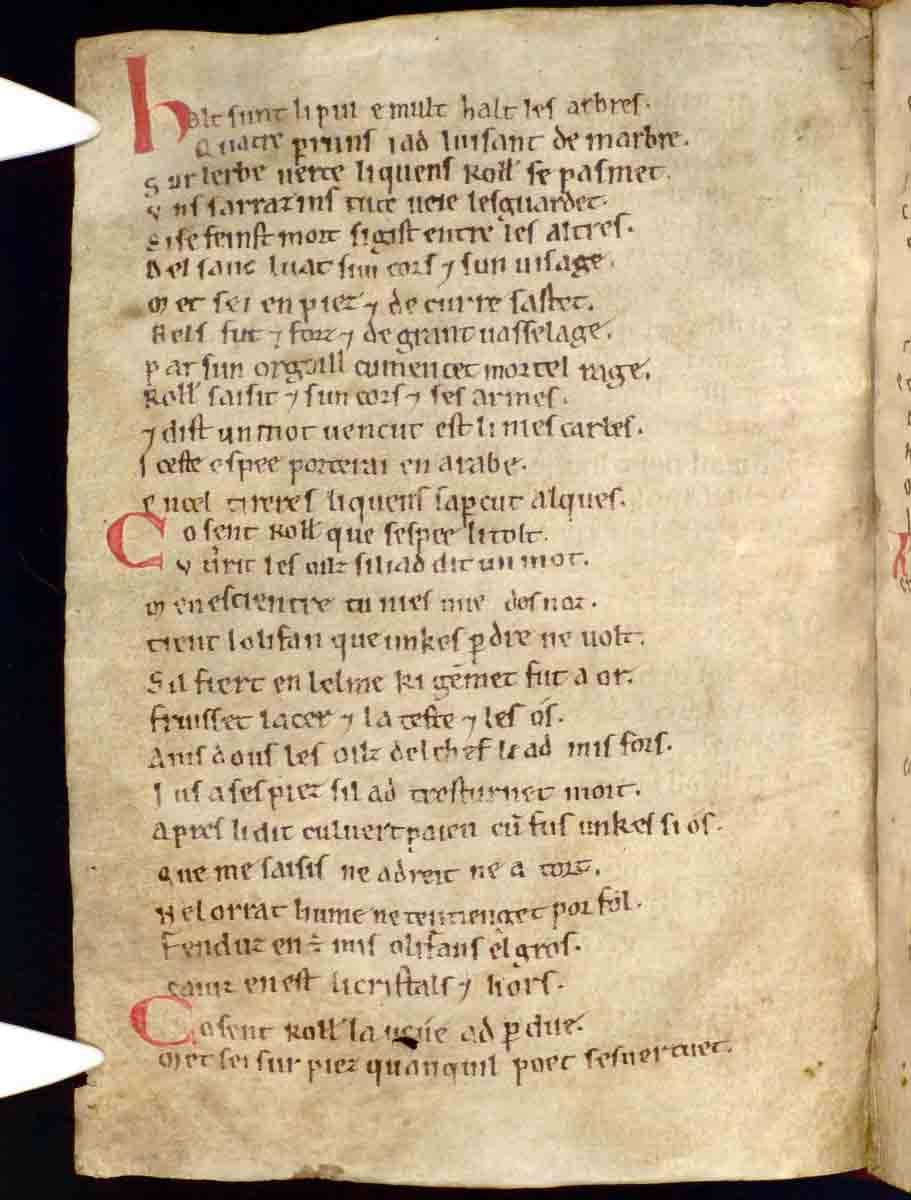 halt sunt li pui e mult halt les arbres.
Quatre perruns i ad luisant de marbre.
Sur lerbe verte li quens Roll' se pasmet.
Uns sarrazins tute veie lesguardet.
Si se feinst mort si gist entre les altres.
Del sanc luat sun cors ⁊ sun visage.
Met sei en piez ⁊ de curre sastet.
Bels fut ⁊ forz ⁊ de grant vasselage.
Par sun orguill cumencet mortel rage.
Roll' saisit ⁊ sun cors ⁊ ses armes.
⁊ dist un mot vencut est li nies carles.
Iceste espee porterai en arabe.
En cel tireres li quens saꝑcut alques.
Co sent Roll' que sespee li tolt.
Uvrit les oilz si li ad dit un mot.
Men escientre tu nies mie des noz.
Tient lolifan que unkes ꝑdre ne volt.
Sil fiert en lelme ki gēmet fut a or.
Fruisset lacer ⁊ la teste ⁊ les os.
Amsdous les oilz del chef li ad mis fors.
Jus a ses piez sil ad tresturnet mort.
Apres li dit culvert paien cū fus unkes si os.
Que me saisis ne a dreit ne a tort.
Ne lorrat hume ne tentienget por fol.
Fenduz en est mis olifans el gros.
Caiuz en est li cristals ⁊ li ors.
Co sent Roll' la veue ad ꝑdue.
Met sei sur piez quanquil poet sesvertuet.